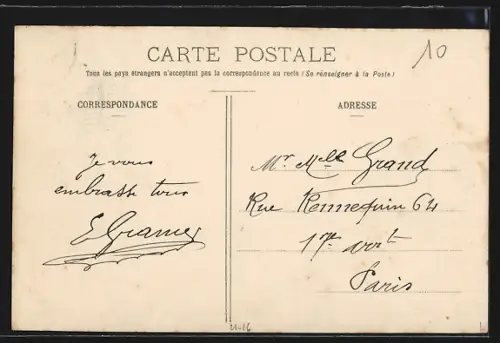 CARTE POSTALE
10
Tous les pays étrangers n'acceptent pas la correspondance au recto (Se renseigner à la Poste)
CORRESPONDANCE
Je vous
embrasse tous
E Grames
ADRESSE
Mr Melle Grand
Rue Rennequin 64
17e arrt
Paris
21-16